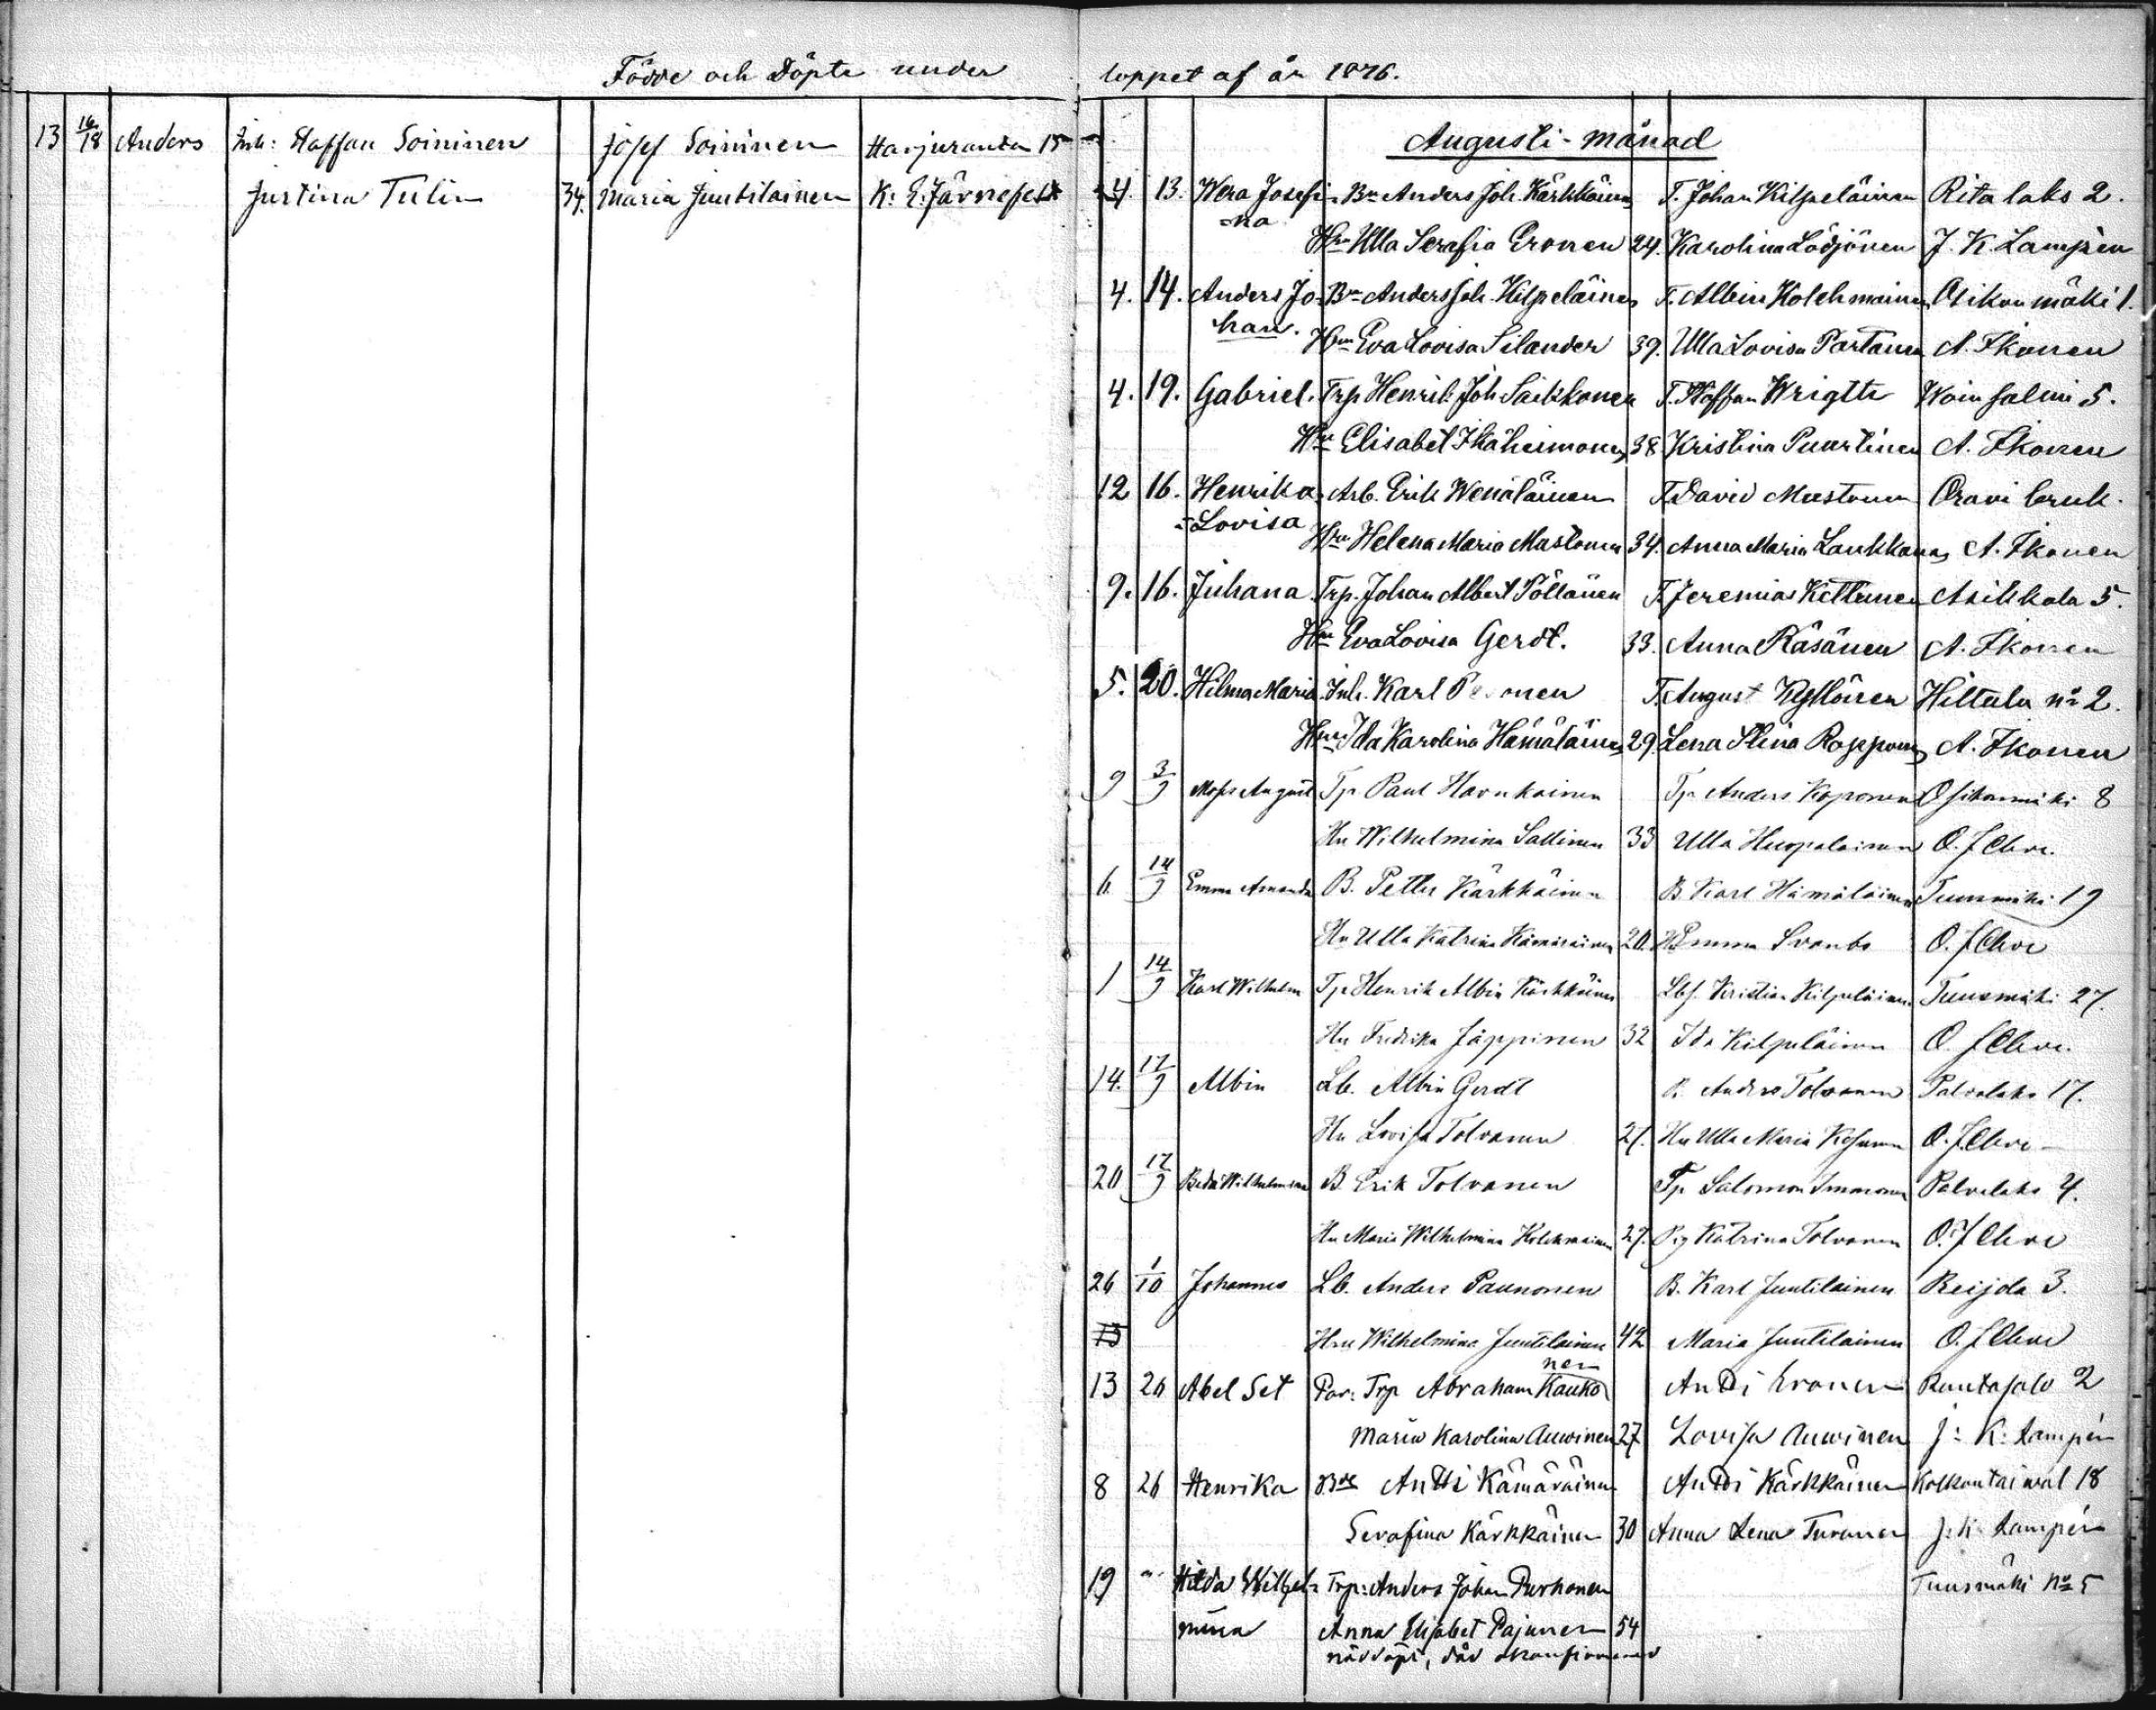 Födde och Döpte under loppet af år 1876.
13 16/18 Anders Inh: Staffan Soininen Josef Soininen Harjuranta 15
Justina Tulin 34. Maria Juutilainen K. E. Järnefelt
Augusti-månad
4. 13. Wera Josefi- Bn Anders Joh. Kärkkäinen T. Johan Kilpeläinen Ritalaks 2.
na Hru Ulla Serafia Eronen 24. Karolina Lödjönen J. K. Lampén
4. 14. Anders Jo- Bn Anders Joh. Kilpeläinen T. Albin Holohmainen Osikonmäki 1.
han. Hru Eva Lovisa Silander 39. Ulla Lovisa Partanen A. Ikonen
4. 19. Gabriel. Trp Henrik Joh Saikkonen T. Staffan Wrigtti Woinsalmi 5.
Hru Elisabet Ikäheimonen 38 Kristina Puurtinen A. Ikonen
12 16. Henrika Arb. Erik Wenäläinen T. David Mustonen Oravi bruk.
-Lovisa Hru Helena Maria Mustonen 34. Anna Maria Laukkanen A. Ikonen
9. 16. Juhana Trp. Johan Albert Pöllänen T. Jeremias Kettunen Asikkala 5.
Hru Eva Lovisa Gerdt. 33. Anna Räsänen A. Ikonen
5. 20. Hilma Maria Inh. Karl T. August Kyllönen Hiltula no 2.
Hru Ida Karolina Hämäläinen 29. Lena Stina Ropponen A. Ikonen
9 3/9 Moses August Tp. Paul Havukainen Tp. Anders Koponen Osikonmäki 8
Hu Wilhelmina Sallinen 33 Ulla Huopalainen O. J. Cleve.
6 14/9 Emma Amanda B. Petter Kärkkäinen B. Karl Hämäläinen Tuusmäki 19
Hu Ulla Katrina Kämäräinen 20. H. Emma Svanbo O. J. Cleve
1 14/9 Karl Wilhelm Tp Henrik Albin Kärkkäinen Lbf. Kristian Kilpeläinen Tuusmäki 27.
Hu Fredrika Jäppinen 32 Ida Kilpeläinen O. J. Cleve.
14. 17/9 Albin Lb. Albin Gerdt Anders Tolvanen Palvalaks 17.
Hu Lovisa Tolvanen 27. Hu Ulla Maria Kosunen O. J. Cleve
20 17/9 Beda Wilhelmina B. Erik Tolvanen Tp Salomon Immonen Palvalaks 4.
Hu Maria Wilhelmina Holohmainen 27. Pig Katrina Tolvanen O. J. Cleve
26 1/10 Johannes Lb. Anders Paunonen B. Karl Juutilainen Keijola 3.
13 Hru Wilhelmina Juutilainen 42 Maria Juutilainen O. J. Cleve
nen
13 26 Abel Set Par: Trp Abraham Kauko Antti Eronen Rantasalo 2
Maria Karolina Auvinen 27 Lovisa Auvinen J: K: Lampén
8 26 Henrika Bde Antti Kämäräinen Antti Kärkkäinen Kolkontaiwal 18
Serafina Kärkkäinen 30 Anna Lena Turunen J: K: Lampén
19 " Hilda Wilhel- Trp: Anders Johan Purhonen Tuusmäki No 5
mina Anna Elisabet Pajunen 54
nöddöpt, död okonfirmerad